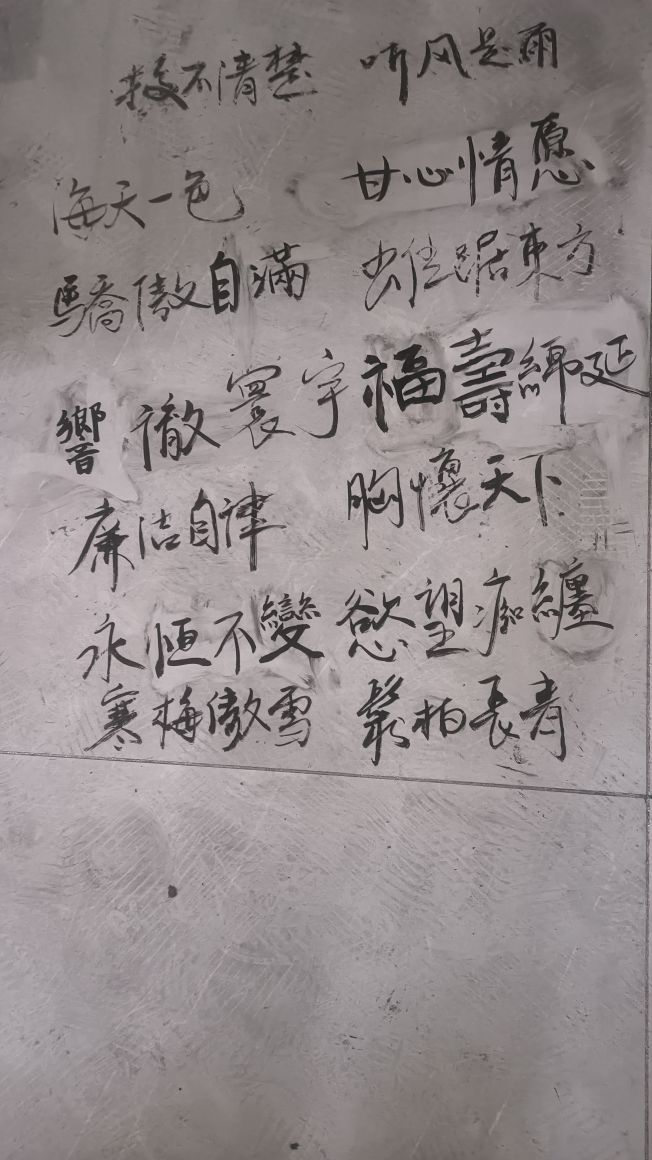 不清楚 听风是雨
海天一色 甘心情愿
驕傲自滿 雄踞東方
響徹寰宇 福壽綿延
廉洁自律 胸懷天下
永恒不變 慾望痴纏
寒梅傲雪 鬆柏長青